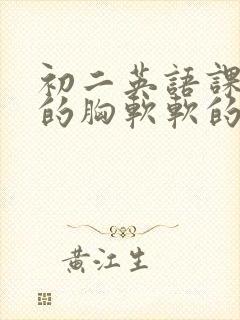 初二英語課
的胸軟軟的
黃江生